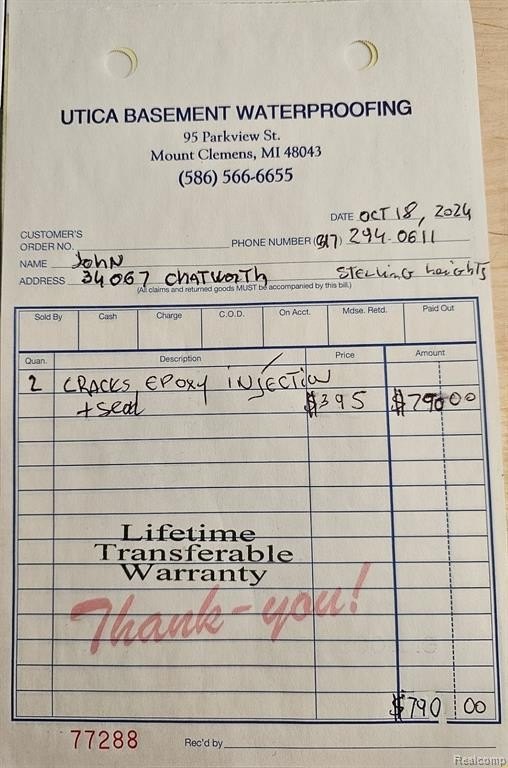 UTICA BASEMENT WATERPROOFING
95 Parkview St.
Mount Clemens, MI 48043
(586) 566-6655
DATE OCT 18, 2024
CUSTOMER'S
ORDER NO. PHONE NUMBER (517) 294-0611
NAME JOHN
ADDRESS 34067 CHATWORTH STERLING heights
(All claims and returned goods MUST be accompanied by this bill.)
Sold By Cash Charge C.O.D. On Acct. Mdse. Retd. Paid Out
Quan. Description Price Amount
2 CRACKS EPOXY INJECTION
+ seal $395 $790 00
Lifetime
Transferable
Warranty
Thank-you!
$790 00
77288 Rec'd by
Realcomp